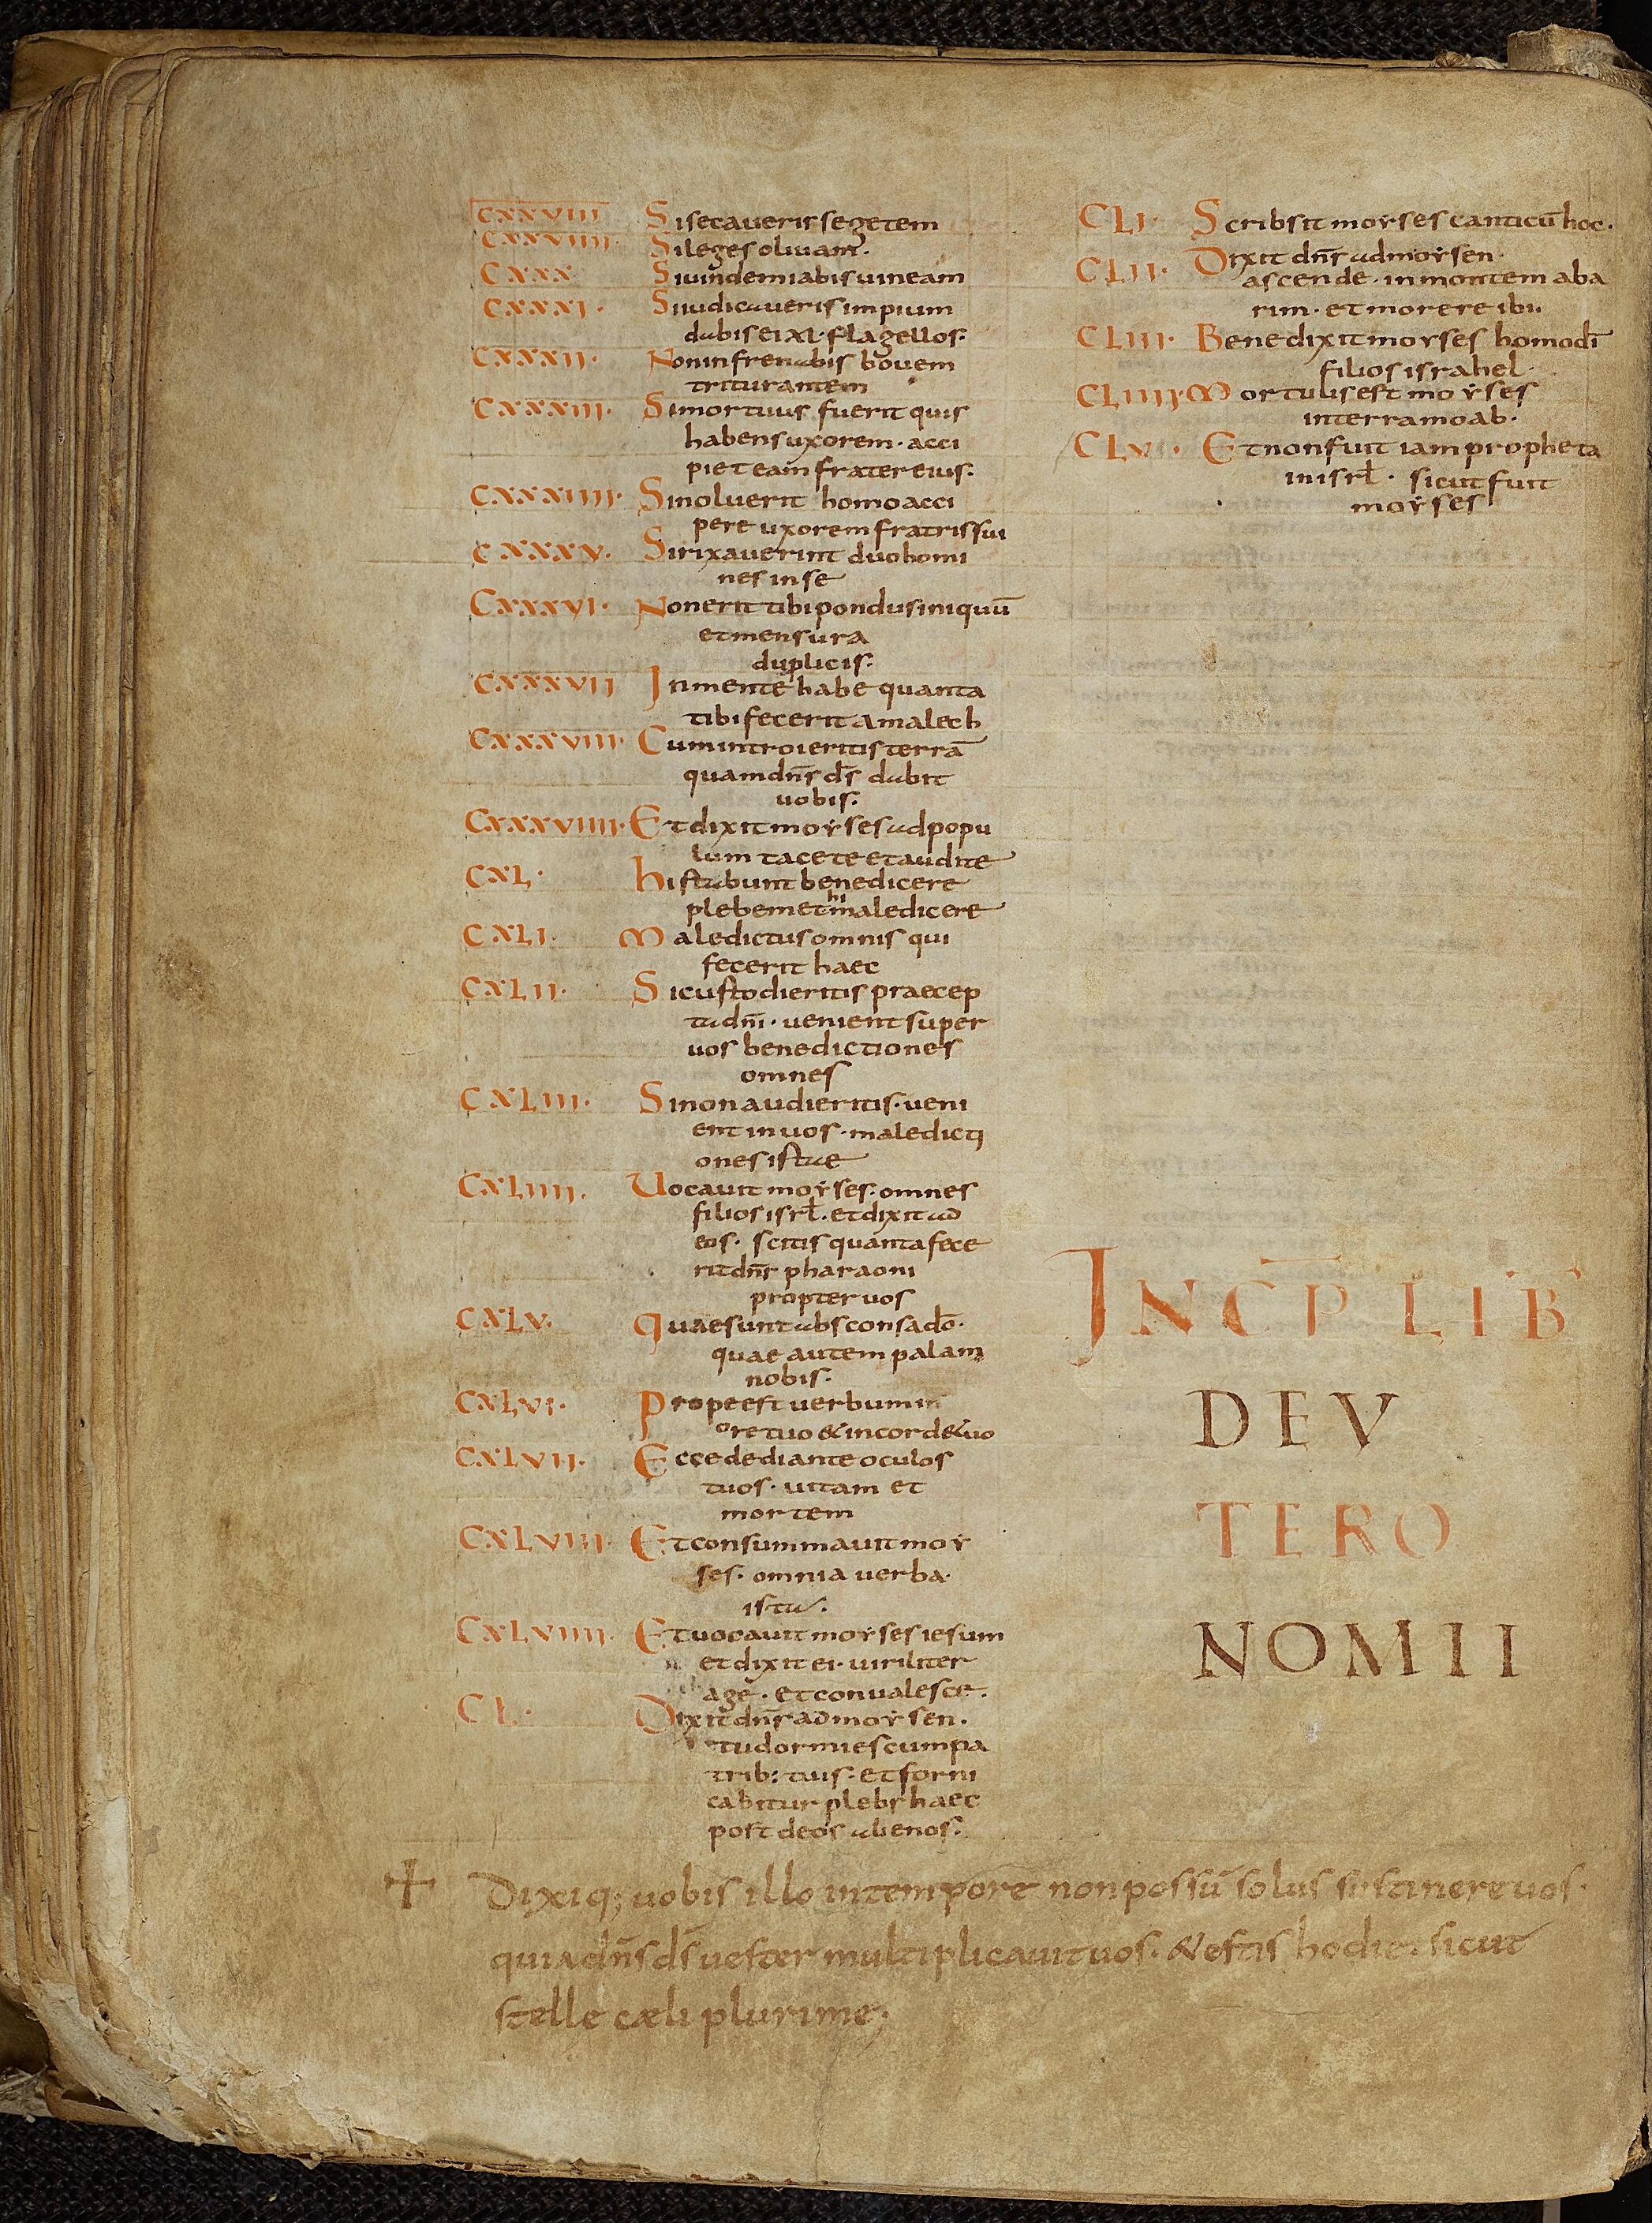 CXXVIII Si secaveris segetem
CXXVIIII· Si leges olivam·
CXXX Si vindemiabis vineam
CXXXI· Si iudicaveris impium
dabis ei XL· flagellos·
CXXXII· Non infrenabis bovem
triturantem
CXXXIII· Si mortuus fuerit quis
habens uxorem· acci
piet eam frater eius·
CXXXIIII· Si noluerit homo acci
pere uxorem fratris sui
CXXXV· Si rixaverint duo homi
nes in se
CXXXVI· Non erit tibi pondus iniquū
et mensura
duplicis·
CXXXVII In mente habe quanta
tibi fecerit amalech
CXXXVIII· Cum introieritis terrā
quam dn̄s d̄s dabit
vobis·
CXXXVIIII· Et dixit moyses ad popu
lum tacete et audite
CXL· hi stabunt benedicere
plebem et hi maledicere
CXLI· Maledictus omnis qui
fecerit haec
CXLII· Si custodieritis praecep
ta dn̄i· venient super
vos benedictiones
omnes
CXLIII· Si non audieritis· veni
ent in vos· maledicti
ones istae
CXLIIII· Vocavit moyses· omnes
filios isrl̄· et dixit ad
eos· scitis quanta fece
rit dn̄s pharaoni
propter vos
CXLV· Quae sunt absconsa dō·
quae autem palam
nobis·
CXLVI· Prope est verbum in
ore tuo & in corde tuo
CXLVII· Ecce dedi ante oculos
tuos· vitam et
mortem
CXLVIII· Et consummavit moy
ses· omnia verba·
ista·
CXLVIIII· Et vocavit moyses iesum
et dixit ei· viriliter
age· et convalesce·
CL· Dixit dn̄s ad moysen·
tu dormies cum pa
trib: tuis· et forni
cabitur plebs haec
post deos alienos·
CLI· Scribsit moyses canticū hoc·
CLII· Dixit dn̄s ad moysen·
ascende· in montem aba
rim· et morere ibi·
CLIII· Benedixit moyses homo dī
filios israhel·
CLIIII· Mortuus est moyses
in terra moab·
CLV· Et non fuit iam propheta
in isrl̄· sicut fuit
moyses
INCP̄ LIB̄
DEV
TERO
NOMII
+ Dixiq; vobis illo in tempore non possū solus sustinere vos·
quia dn̄s d̄s vester multiplicavit vos· & estis hodie· sicut
stelle cæli plurime;